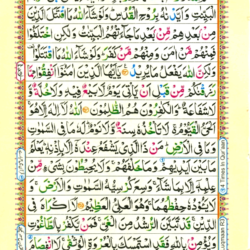 الْبَيِّنٰتِ وَاَيَّدْنٰهُ بِرُوْحِ الْقُدُسِ وَلَوْ شَآءَ اللّٰهُ مَا اقْتَتَلَ الَّذِيْنَ
مِنْ بَعْدِهِمْ مِّنْ بَعْدِ مَا جَآءَتْهُمُ الْبَيِّنٰتُ وَلٰكِنِ اخْتَلَفُوْا
فَمِنْهُمْ مَّنْ اٰمَنَ وَمِنْهُمْ مَّنْ كَفَرَ وَلَوْ شَآءَ اللّٰهُ مَا اقْتَتَلُوْا
وَلٰكِنَّ اللّٰهَ يَفْعَلُ مَا يُرِيْدُ يٰٓاَيُّهَا الَّذِيْنَ اٰمَنُوْٓا اَنْفِقُوْا مِمَّا
رَزَقْنٰكُمْ مِّنْ قَبْلِ اَنْ يَّاْتِيَ يَوْمٌ لَّا بَيْعٌ فِيْهِ وَلَا خُلَّةٌ وَّ
لَا شَفَاعَةٌ وَالْكٰفِرُوْنَ هُمُ الظّٰلِمُوْنَ اَللّٰهُ لَآ اِلٰهَ اِلَّا هُوَ
الْحَيُّ الْقَيُّوْمُ لَا تَاْخُذُهٗ سِنَةٌ وَّلَا نَوْمٌ لَهٗ مَا فِي السَّمٰوٰتِ
وَمَا فِي الْاَرْضِ مَنْ ذَا الَّذِيْ يَشْفَعُ عِنْدَهٗٓ اِلَّا بِاِذْنِهٖ يَعْلَمُ
مَا بَيْنَ اَيْدِيْهِمْ وَمَا خَلْفَهُمْ وَلَا يُحِيْطُوْنَ بِشَيْءٍ مِّنْ
عِلْمِهٖٓ اِلَّا بِمَا شَآءَ وَسِعَ كُرْسِيُّهُ السَّمٰوٰتِ وَالْاَرْضَ وَ
لَا يَـُٔوْدُهٗ حِفْظُهُمَا وَهُوَ الْعَلِيُّ الْعَظِيْمُ لَآ اِكْرَاهَ فِي
الدِّيْنِ قَدْ تَّبَيَّنَ الرُّشْدُ مِنَ الْغَيِّ فَمَنْ يَّكْفُرْ بِالطَّاغُوْتِ
وَيُؤْمِنْ بِاللّٰهِ فَقَدِ اسْتَمْسَكَ بِالْعُرْوَةِ الْوُثْقٰى لَا انْفِصَامَ